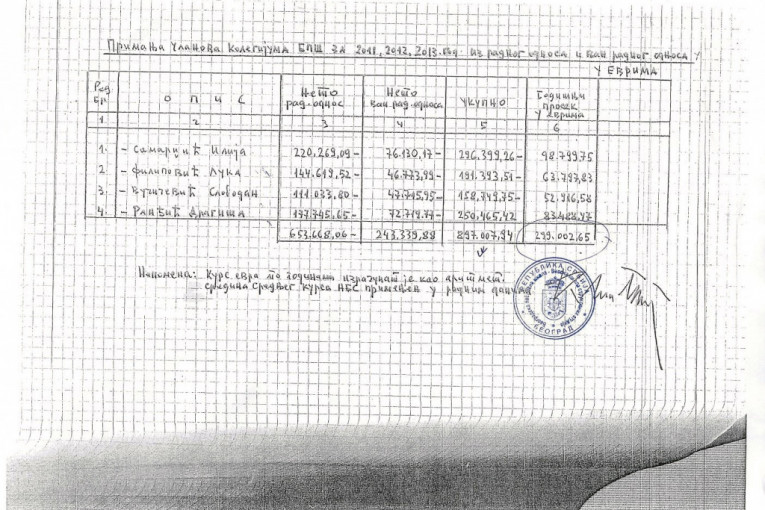 Примања чланова Колегијума БПШ за 2011, 2012, 2013. год. из радног односа и ван радног односа
у еврима
Ред. бр. О П И С Нето рад. однос Нето ван рад. односа УКУПНО Годишњи просек у еврима
1 2 3 4 5 6
1. - Самарџић Илија 220.269,09- 76.130,17- 296.399,26- 98.799,75
2 - Филиповић Лука 144.619,52- 46.773,99- 191.393,51- 63.797,83
3. - Вучићевић Слободан 111.033,80- 47.715,95- 158.749,75- 52.916,58
4. - Ранђић Драгиша 177.745,65- 72.719,77- 250.465,42 83.488,47
653.668,06- 243.339,88 897.007,94 299.002,65
Напомена: Курс евра по годинама израчунат је као аритмет.
средина средњег курса НБС примењен у радним данима
РЕПУБЛИКА СРБИЈА
БЕОГРАД